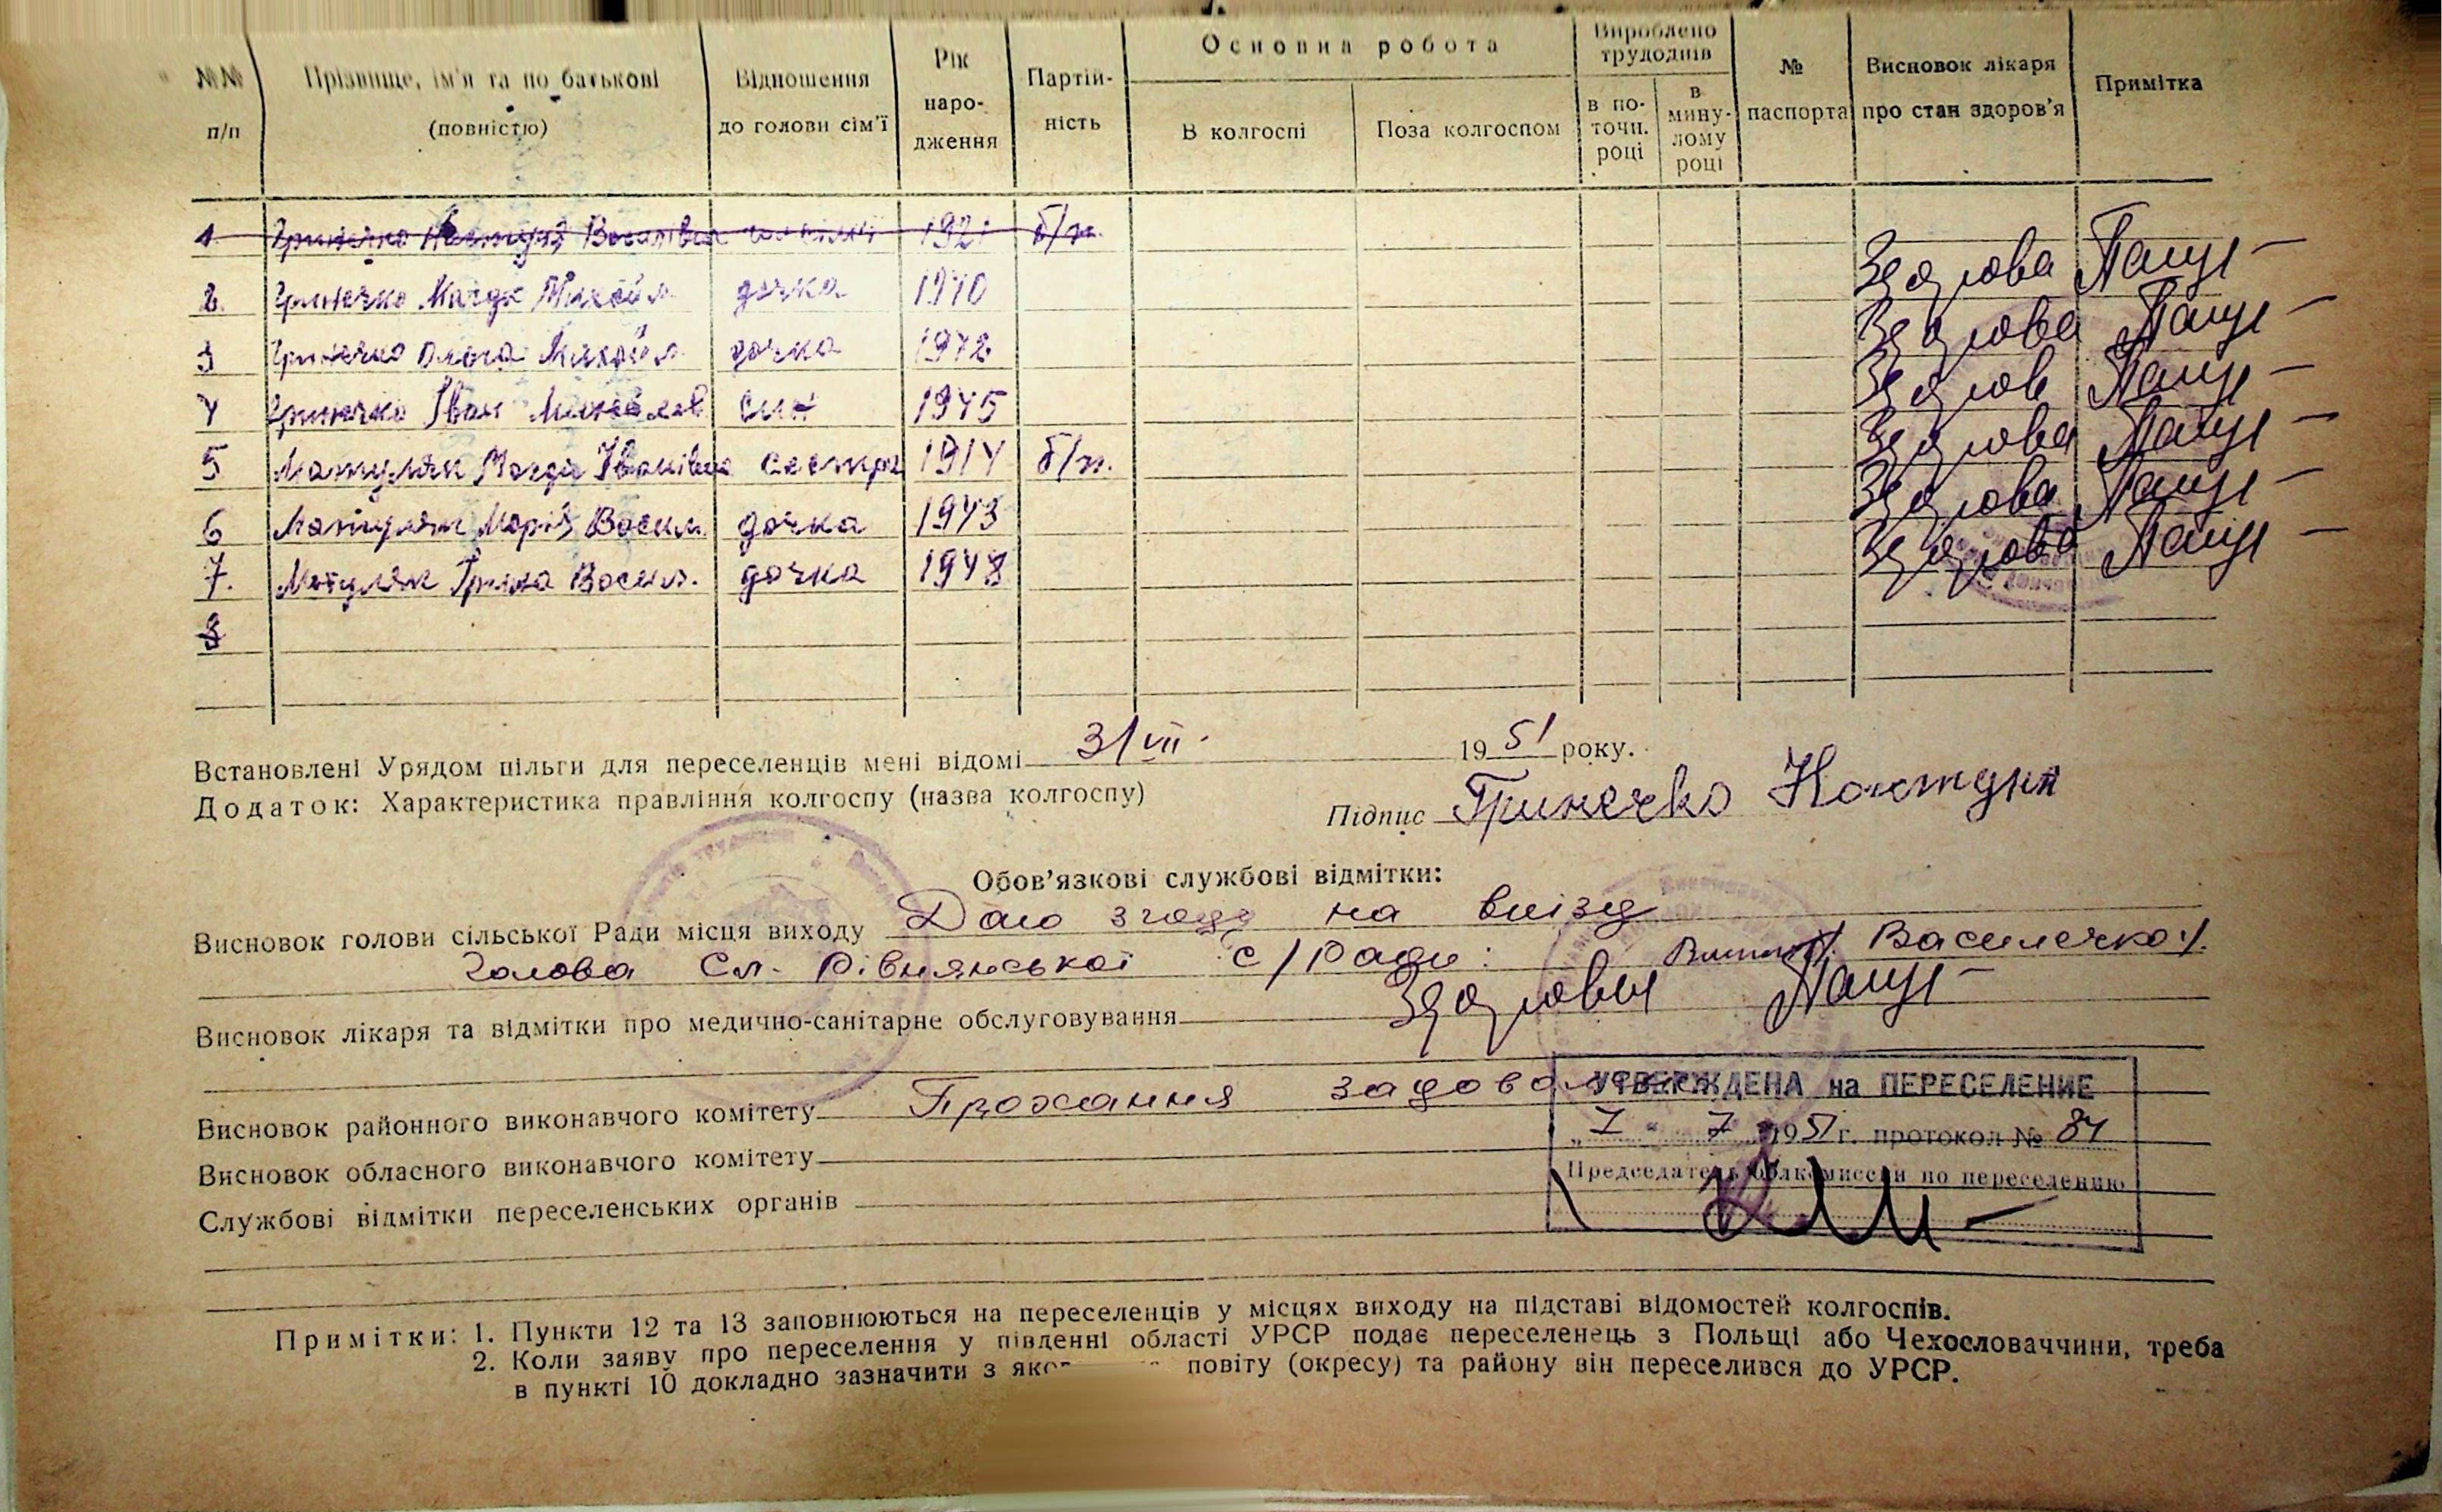 №№ п/п
Прізвище, ім'я та по батькові (повністю)
Відношення до голови сім'ї
Рік народження
Партійність
Основна робота
В колгоспі
Поза колгоспом
Вироблено трудоднів
в поточн. році
в минулому році
№ паспорта
Висновок лікаря про стан здоров'я
Примітка
1 Гринечко Настуня Василівна 1921 б/п.
2. Гринечко Магда Михайл. дочка 1940 Здорова
3 Гринечко Ольга Михайл. дочка 1942 Здорова
4 Гринечко Іван Михайлов син 1945 Здоров
5 Матуляк Магда Іванівна сестра 1914 б/п. Здорова
6 Матуляк Марія Васил. дочка 1943 Здорова
7. Матуляк Ірина Васил. дочка 1948 Здорова
8
Встановлені Урядом пільги для переселенців мені відомі 31/VII. 1951 року.
Додаток: Характеристика правління колгоспу (назва колгоспу)
Підпис Гринечко Настуня
Обов'язкові службові відмітки:
Висновок голови сільської Ради місця виходу Даю згоду на виїзд
Голова Сл. Рівнянської с/Ради: Василечко/.
Висновок лікаря та відмітки про медично-санітарне обслуговування Здоровы
Висновок районного виконавчого комітету Прохання
УТВЕРЖДЕНА на ПЕРЕСЕЛЕНИЕ
7 1951 г. протокол № 84
Председатель облкомиссии по переселению
Висновок обласного виконавчого комітету
Службові відмітки переселенських органів
Примітки: 1. Пункти 12 та 13 заповнюються на переселенців у місцях виходу на підставі відомостей колгоспів.
2. Коли заяву про переселення у південні області УРСР подає переселенець з Польщі або Чехословаччини, треба
в пункті 10 докладно зазначити з повіту (окресу) та району він переселився до УРСР.